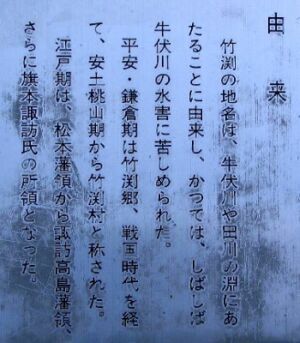 由来
竹渕の地名は、牛伏川や田川の淵にあ
たることに由来し、かつては、しばしば
牛伏川の水害に苦しめられた。
平安・鎌倉期は竹渕郷、戦国時代を経
て、安土桃山期から竹渕村と称された。
江戸期は、松本藩領から諏訪高島藩領、
さらに旗本諏訪氏の所領となった。